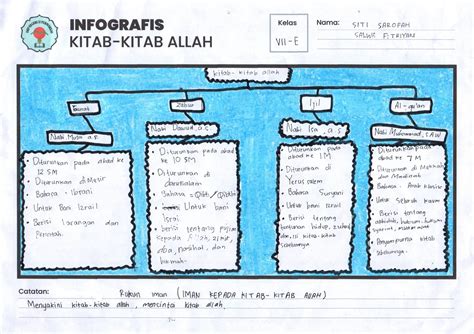 INFOGRAFIS
KITAB-KITAB ALLAH
Kelas
VII-E
Nama: SITI SAROFAH
SALWK FITRIYANI
kitab-kitab allah
Taurat
Nabi Musa a.s
• Diturunkan pada abad ke
12 SM
• Diturunkan di Mesir
• Bahasa : Ibrani
• Untuk Bani Israil
• Berisi larangan dan
Perintah.
Zabur
Nabi Dawud, a.s
• Diturunkan pada abad
ke 10 SM
• Diturunkan di
• Bahasa = Qibti
• Untuk bani
Israil
• berisi tentang pujian
kepada Allah, zikir,
doa, nasihat, dan
hikmah.
Injil
Nabi Isa, a.s
• Diturunkan pada
abad ke 1M
• Diturunkan di
Yerussalem
• Bahasa Suryani
• Untuk Bani Israil
• Berisi tentang
tuntunan
kitab-kitab
sebelumnya.
Al-qur'an
Nabi Muhammad, SAW
• Diturunkan pada abad
ke 7 M
• Diturunkan di Mekkah
dan Madinah
• Bahasa : Arab
• Untuk Seluruh
• Berisi tentang
• Penyempurna kitab
Sebelumnya.
Catatan: Rukun iman (IMAN KEPADA KITAB-KITAB ALLAH)
Menyakini kitab-kitab allah, mencintai kitab allah.